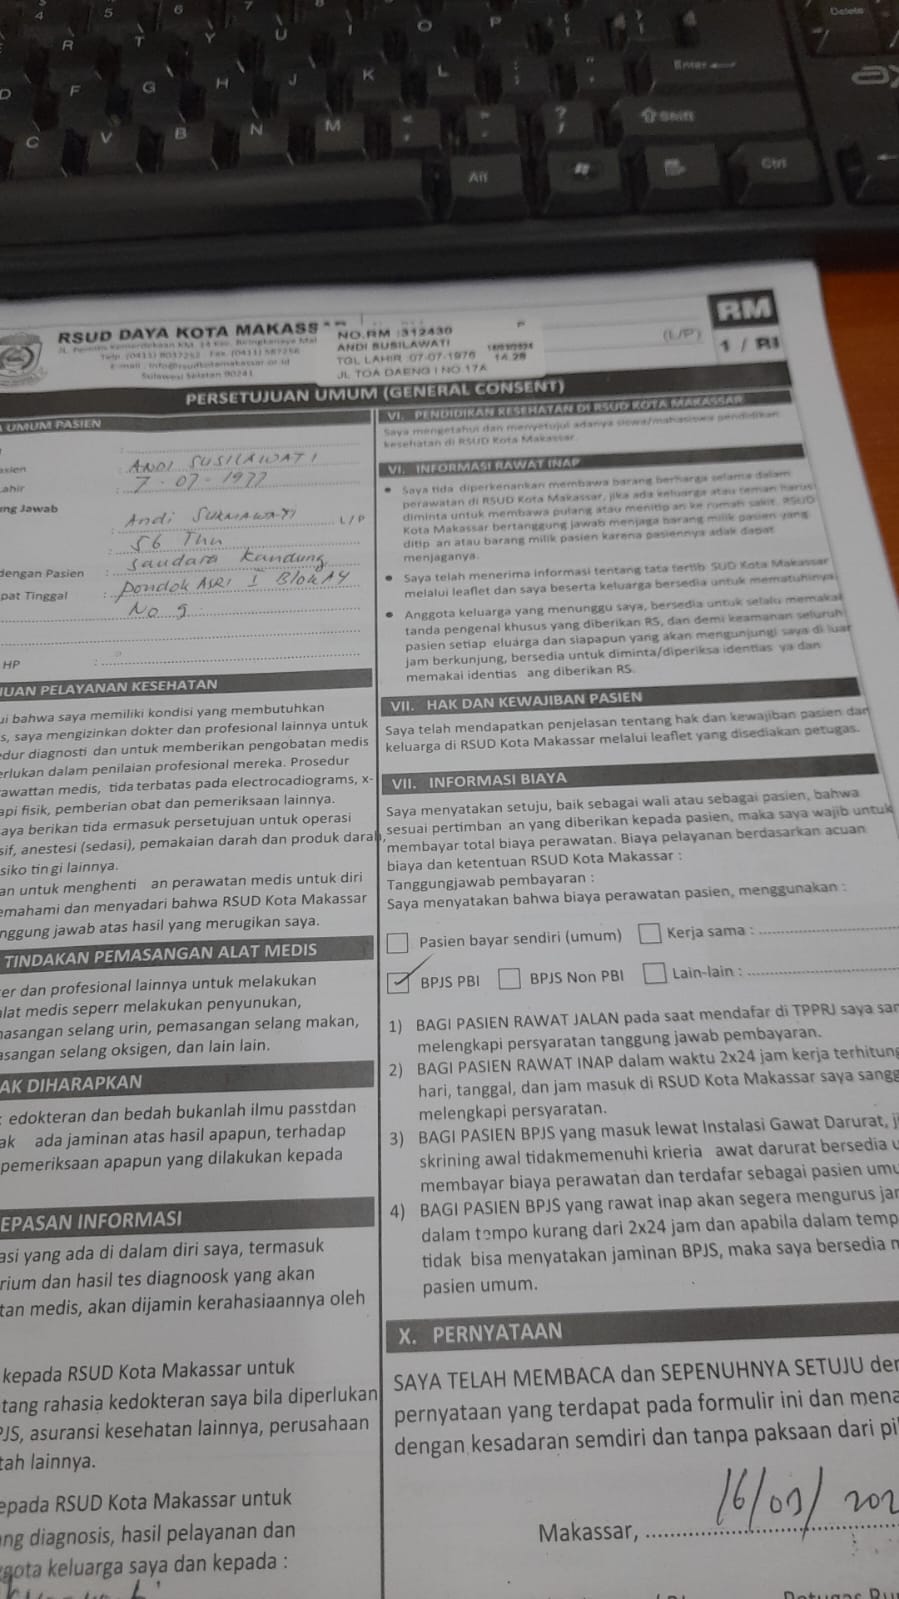 RM
RSUD DAYA KOTA MAKASS
NO.RM :312430
ANDI SUSILAWATI
TGL LAHIR :07-07-1976 14.28
JL TOA DAENG I NO.17A
(L/P)
1 / RI
Sulawesi Selatan 90241
PERSETUJUAN UMUM (GENERAL CONSENT)
UMUM PASIEN
asien ANDI SUSILAWATI
ahir : 7-07-1977
ng Jawab
: Andi SUKMAWATI L/P
: 56 Thn
dengan Pasien : Saudara Kandung
pat Tinggal : Pondok ASRI I Blok A4
No 9
HP :
UAN PELAYANAN KESEHATAN
ui bahwa saya memiliki kondisi yang membutuhkan
s, saya mengizinkan dokter dan profesional lainnya untuk
edur diagnosti dan untuk memberikan pengobatan medis
erlukan dalam penilaian profesional mereka. Prosedur
awattan medis, tida terbatas pada electrocadiograms, x-
api fisik, pemberian obat dan pemeriksaan lainnya.
aya berikan tida ermasuk persetujuan untuk operasi
sif, anestesi (sedasi), pemakaian darah dan produk darah,
siko tin gi lainnya.
an untuk menghenti an perawatan medis untuk diri
emahami dan menyadari bahwa RSUD Kota Makassar
nggung jawab atas hasil yang merugikan saya.
TINDAKAN PEMASANGAN ALAT MEDIS
er dan profesional lainnya untuk melakukan
alat medis seperr melakukan penyunukan,
asangan selang urin, pemasangan selang makan,
asangan selang oksigen, dan lain lain.
AK DIHARAPKAN
edokteran dan bedah bukanlah ilmu passtdan
ak ada jaminan atas hasil apapun, terhadap
pemeriksaan apapun yang dilakukan kepada
EPASAN INFORMASI
asi yang ada di dalam diri saya, termasuk
rium dan hasil tes diagnoosk yang akan
tan medis, akan dijamin kerahasiaannya oleh
kepada RSUD Kota Makassar untuk
tang rahasia kedokteran saya bila diperlukan
PJS, asuransi kesehatan lainnya, perusahaan
tah lainnya.
epada RSUD Kota Makassar untuk
ang diagnosis, hasil pelayanan dan
ggota keluarga saya dan kepada :
VI. PENDIDIKAN KESEHATAN DI RSUD KOTA MAKASSAR
Saya mengetahui dan menyetujui adanya siswa/mahasiswa pendidikan
kesehatan di RSUD Kota Makassar.
VI. INFORMASI RAWAT INAP
• Saya tida diperkenankan membawa barang berharga selama dalam
perawatan di RSUD Kota Makassar, jika ada keluarga atau teman harus
diminta untuk membawa pulang atau menitip an ke rumah sakit. RSUD
Kota Makassar bertanggung jawab menjaga barang milik pasien yang
ditip an atau barang milik pasien karena pasiennya adak dapat
menjaganya.
• Saya telah menerima informasi tentang tata tertib SUD Kota Makassar
melalui leaflet dan saya beserta keluarga bersedia untuk mematuhinya
• Anggota keluarga yang menunggu saya, bersedia untuk selalu memakai
tanda pengenal khusus yang diberikan RS, dan demi keamanan seluruh
pasien setiap eluarga dan siapapun yang akan mengunjungi saya di luar
jam berkunjung, bersedia untuk diminta/diperiksa identias ya dan
memakai identias ang diberikan RS.
VII. HAK DAN KEWAJIBAN PASIEN
Saya telah mendapatkan penjelasan tentang hak dan kewajiban pasien dan
keluarga di RSUD Kota Makassar melalui leaflet yang disediakan petugas.
VII. INFORMASI BIAYA
Saya menyatakan setuju, baik sebagai wali atau sebagai pasien, bahwa
sesuai pertimban an yang diberikan kepada pasien, maka saya wajib untuk
membayar total biaya perawatan. Biaya pelayanan berdasarkan acuan
biaya dan ketentuan RSUD Kota Makassar :
Tanggungjawab pembayaran :
Saya menyatakan bahwa biaya perawatan pasien, menggunakan :
Pasien bayar sendiri (umum) Kerja sama :
BPJS PBI BPJS Non PBI Lain-lain :
1) BAGI PASIEN RAWAT JALAN pada saat mendafar di TPPRJ saya san
melengkapi persyaratan tanggung jawab pembayaran.
2) BAGI PASIEN RAWAT INAP dalam waktu 2x24 jam kerja terhitung
hari, tanggal, dan jam masuk di RSUD Kota Makassar saya sangg
melengkapi persyaratan.
3) BAGI PASIEN BPJS yang masuk lewat Instalasi Gawat Darurat, j
skrining awal tidakmemenuhi krieria awat darurat bersedia u
membayar biaya perawatan dan terdafar sebagai pasien umu
4) BAGI PASIEN BPJS yang rawat inap akan segera mengurus jar
dalam tempo kurang dari 2x24 jam dan apabila dalam temp
tidak bisa menyatakan jaminan BPJS, maka saya bersedia m
pasien umum.
X. PERNYATAAN
SAYA TELAH MEMBACA dan SEPENUHNYA SETUJU der
pernyataan yang terdapat pada formulir ini dan mena
dengan kesadaran semdiri dan tanpa paksaan dari pi
Makassar, 16/03/202